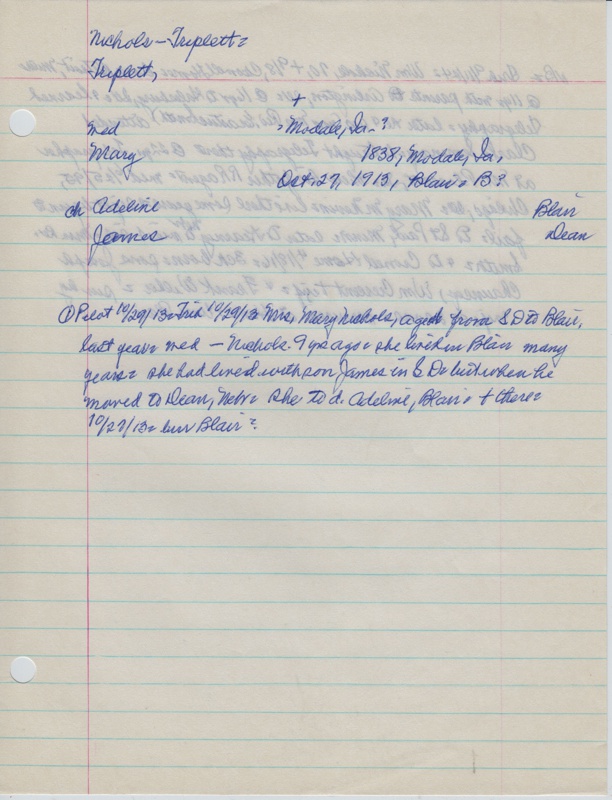 Nichols – Triplett =
Triplett,
+
med = Modale, Ia. - ?
Mary 1838, Modale, Ia,
Oct. 27, 1913, Blair = B?
ch Adeline Blair
James Dean
① Pilot 10/29/13 = Trib 10/29/13 Mrs, Mary Nichols, aged from S D to Blair,
last year = med – Nichols. 9 ys ago = she lived in Blair many
years = she had lived with son James in S D. but when he
moved to Dean, Nebr = she to d. Adeline, Blair = + there =
10/27/13 = bur Blair =